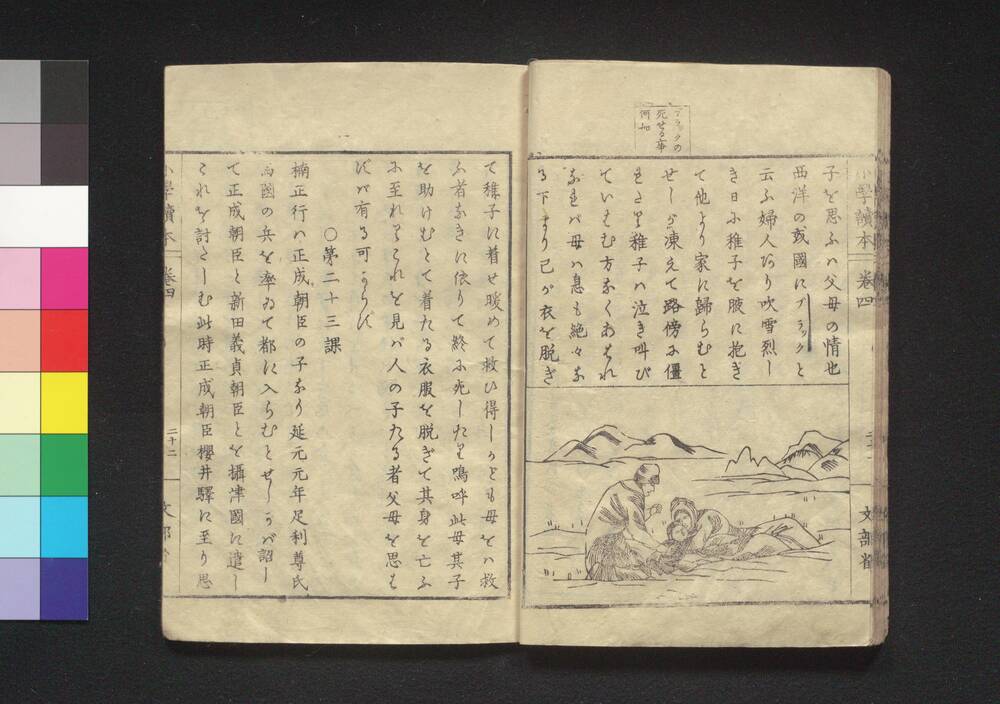 ブラックの
死せる事
何如
小學讀本
卷四
文部省
子を思ふハ父母の情也
西洋の或國にブラックと
云ふ婦人あり吹雪烈し
き日に稚子を腋に抱き
て他より家に歸らむと
せしが凍えて路傍に僵
れたり稚子ハ泣き叫び
ていはむ方なくあはれ
なれバ母ハ息も絶々な
る下より己が衣を脱ぎ
て稚子に着せ暖めて救ひ得しかども母をハ救
ふ者なきに依りて終に死したり嗚呼此母其子
を助けむとて着たる衣服を脱ぎて其身を亡ふ
に至れりこれを見バ人の子たる者父母を思も
ずバ有る可からず
○第二十三課
楠正行ハ正成朝臣の子なり延元元年足利尊氏
西國の兵を率ゐて都に入らむとせしかバ詔し
て正成朝臣と新田義貞朝臣とを攝津國に遣し
これを討たしむ此時正成朝臣櫻井驛に至り思
小學讀本
卷四
二十二
文部省